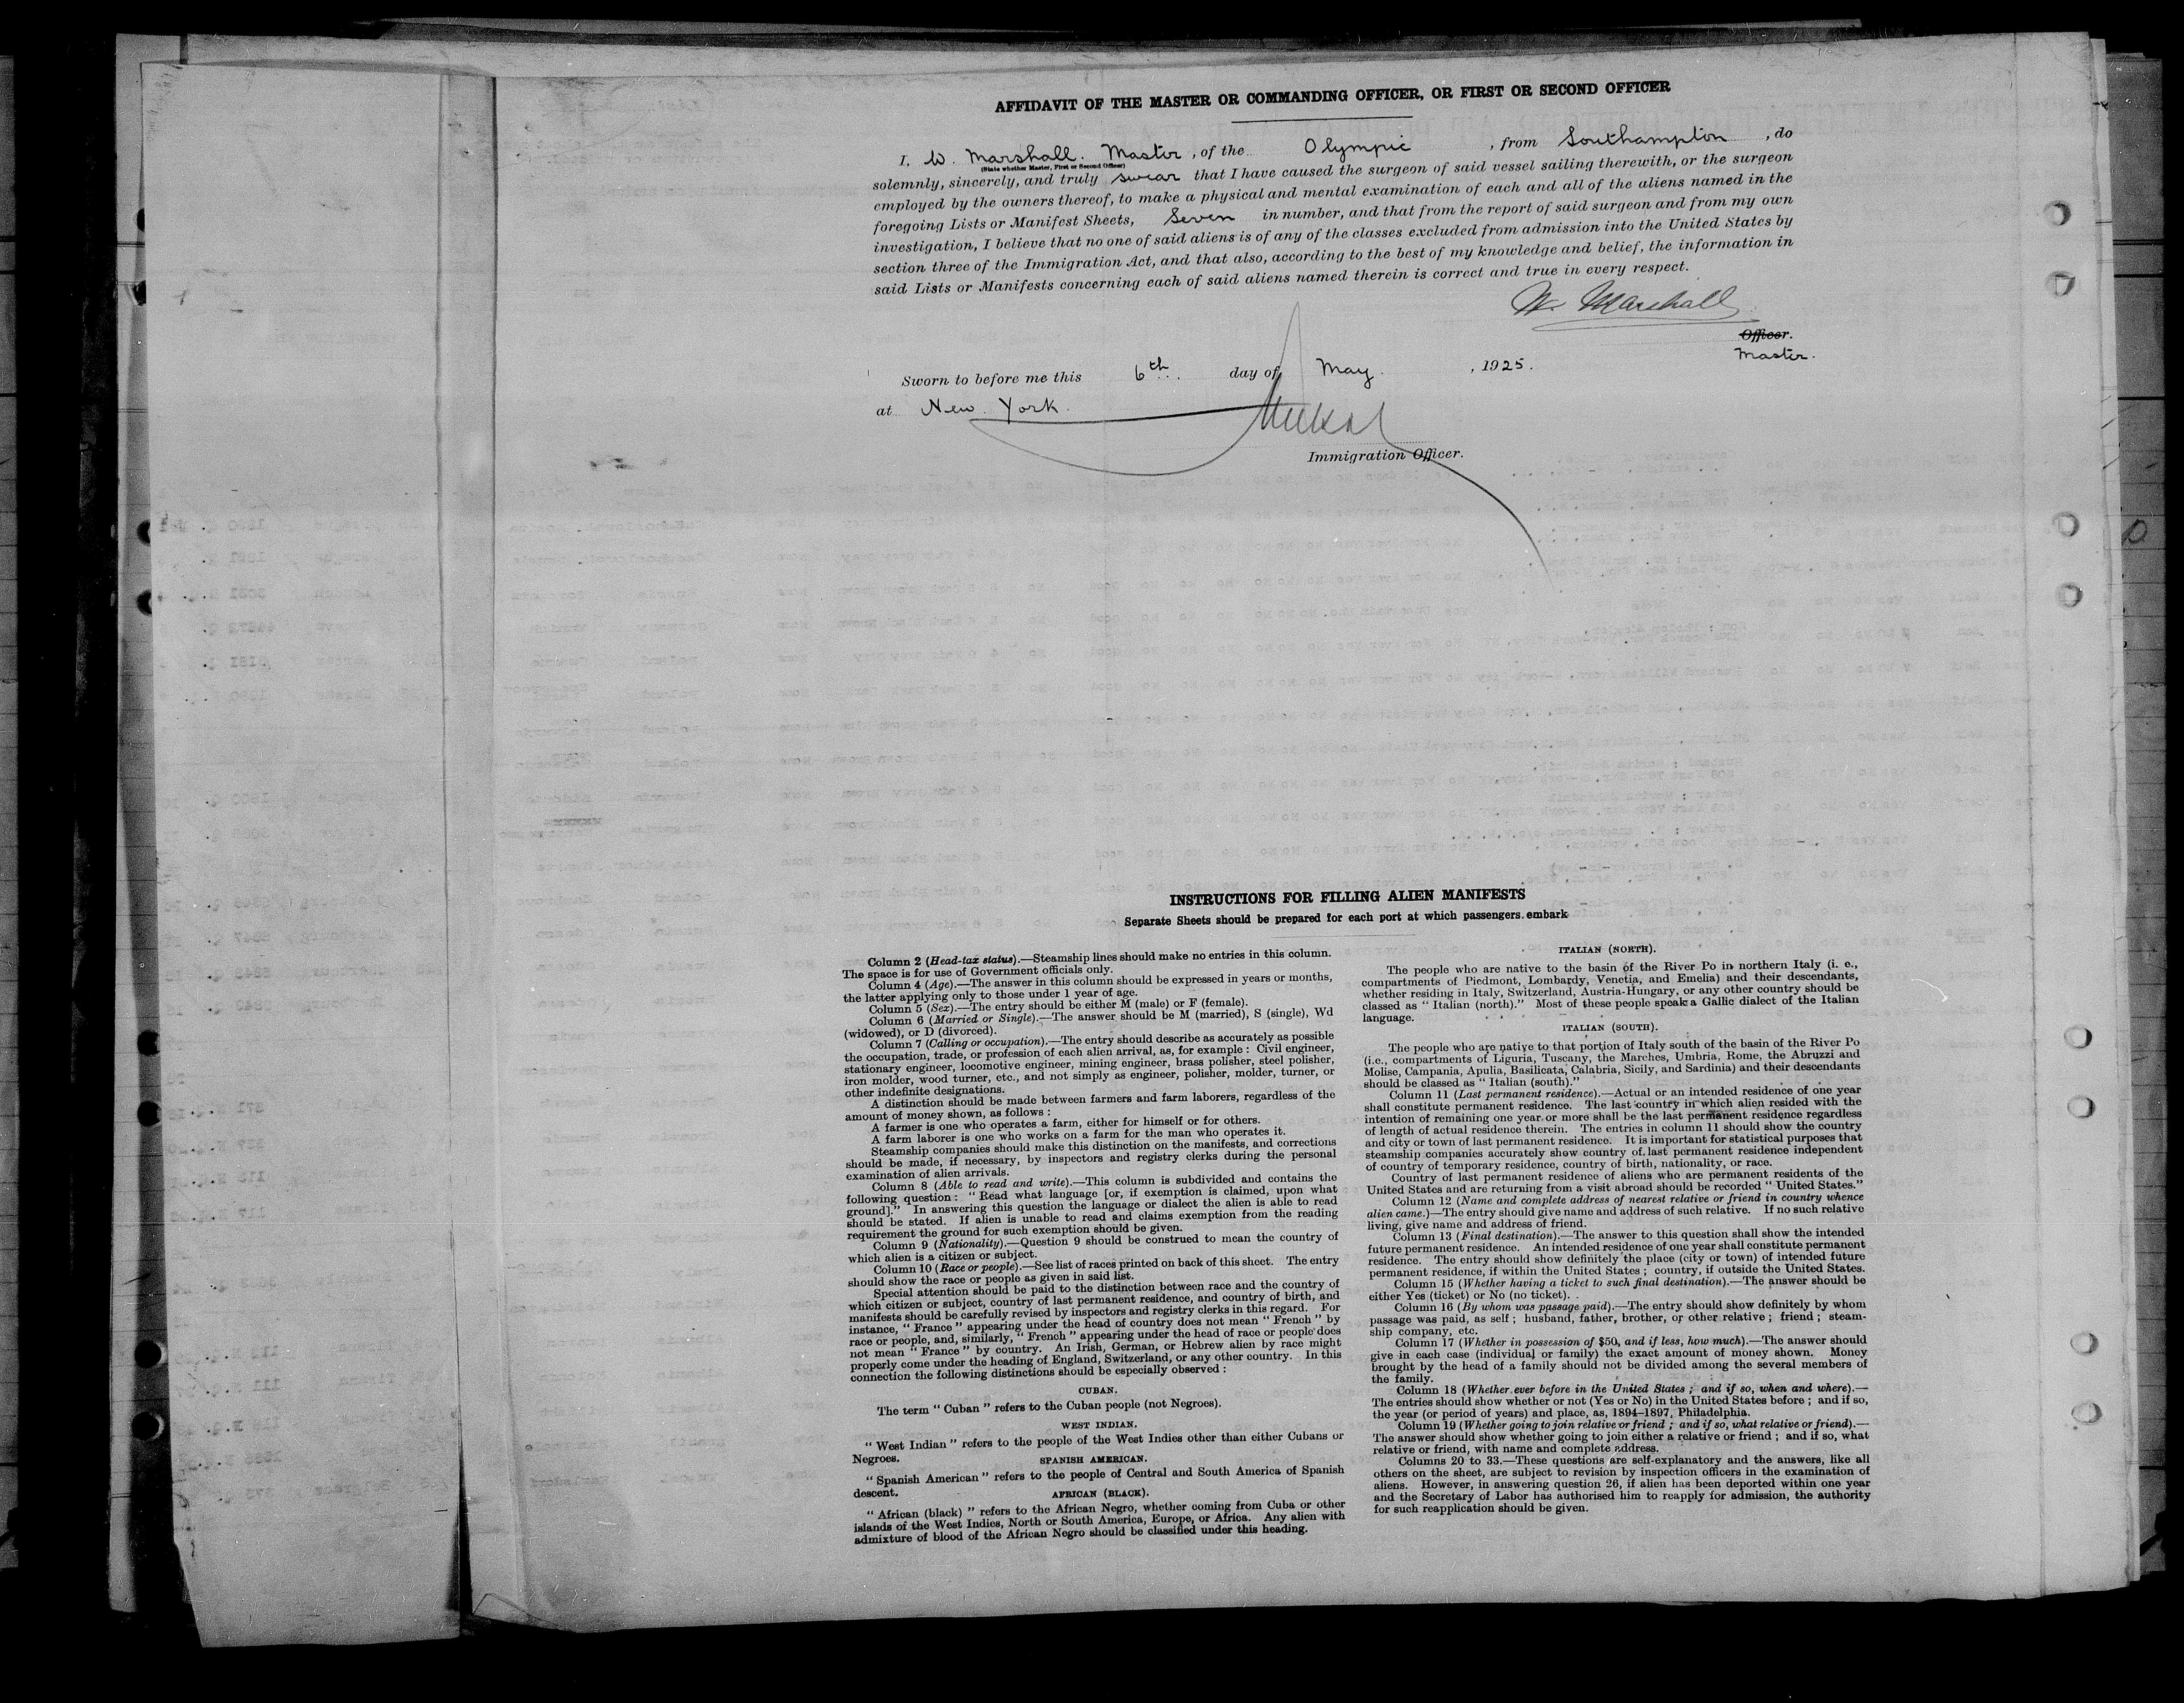 AFFIDAVIT OF THE MASTER OR COMMANDING OFFICER, OR FIRST OR SECOND OFFICER
I, W. Marshall. Master, of the Olympic, from Southampton, do
(State whether Master, First or Second Officer)
solemnly, sincerely, and truly swear that I have caused the surgeon of said vessel sailing therewith, or the surgeon
employed by the owners thereof, to make a physical and mental examination of each and all of the aliens named in the
foregoing Lists or Manifest Sheets, Seven in number, and that from the report of said surgeon and from my own
investigation, I believe that no one of said aliens is of any of the classes excluded from admission into the United States by
section three of the Immigration Act, and that also, according to the best of my knowledge and belief, the information in
said Lists or Manifests concerning each of said aliens named therein is correct and true in every respect.
W. Marshall
Officer.
Master.
Sworn to before me this 6th day of May, 1925.
at New York.
Immigration Officer.
INSTRUCTIONS FOR FILLING ALIEN MANIFESTS
Separate Sheets should be prepared for each port at which passengers embark
Column 2 (Head-tax status).—Steamship lines should make no entries in this column.
The space is for use of Government officials only.
Column 4 (Age).—The answer in this column should be expressed in years or months,
the latter applying only to those under 1 year of age.
Column 5 (Sex).—The entry should be either M (male) or F (female).
Column 6 (Married or Single).—The answer should be M (married), S (single), Wd
(widowed), or D (divorced).
Column 7 (Calling or occupation).—The entry should describe as accurately as possible
the occupation, trade, or profession of each alien arrival, as, for example : Civil engineer,
stationary engineer, locomotive engineer, mining engineer, brass polisher, steel polisher,
iron molder, wood turner, etc., and not simply as engineer, polisher, molder, turner, or
other indefinite designations.
A distinction should be made between farmers and farm laborers, regardless of the
amount of money shown, as follows :
A farmer is one who operates a farm, either for himself or for others.
A farm laborer is one who works on a farm for the man who operates it.
Steamship companies should make this distinction on the manifests, and corrections
should be made, if necessary, by inspectors and registry clerks during the personal
examination of alien arrivals.
Column 8 (Able to read and write).—This column is subdivided and contains the
following question : " Read what language [or, if exemption is claimed, upon what
ground]." In answering this question the language or dialect the alien is able to read
should be stated. If alien is unable to read and claims exemption from the reading
requirement the ground for such exemption should be given.
Column 9 (Nationality).—Question 9 should be construed to mean the country of
which alien is a citizen or subject.
Column 10 (Race or people).—See list of races printed on back of this sheet. The entry
should show the race or people as given in said list.
Special attention should be paid to the distinction between race and the country of
which citizen or subject, country of last permanent residence, and country of birth, and
manifests should be carefully revised by inspectors and registry clerks in this regard. For
instance, " France " appearing under the head of country does not mean " French " by
race or people, and, similarly, " French " appearing under the head of race or people does
not mean " France " by country. An Irish, German, or Hebrew alien by race might
properly come under the heading of England, Switzerland, or any other country. In this
connection the following distinctions should be especially observed :
CUBAN.
The term " Cuban " refers to the Cuban people (not Negroes).
WEST INDIAN.
" West Indian " refers to the people of the West Indies other than either Cubans or
Negroes.
SPANISH AMERICAN.
" Spanish American " refers to the people of Central and South America of Spanish
descent.
AFRICAN (BLACK).
" African (black) " refers to the African Negro, whether coming from Cuba or other
islands of the West Indies, North or South America, Europe, or Africa. Any alien with
admixture of blood of the African Negro should be classified under this heading.
ITALIAN (NORTH).
The people who are native to the basin of the River Po in northern Italy (i. e.,
compartments of Piedmont, Lombardy, Venetia, and Emelia) and their descendants,
whether residing in Italy, Switzerland, Austria-Hungary, or any other country should be
classed as " Italian (north)." Most of these people speak a Gallic dialect of the Italian
language.
ITALIAN (SOUTH).
The people who are native to that portion of Italy south of the basin of the River Po
(i.e., compartments of Liguria, Tuscany, the Marches, Umbria, Rome, the Abruzzi and
Molise, Campania, Apulia, Basilicata, Calabria, Sicily, and Sardinia) and their descendants
should be classed as " Italian (south)."
Column 11 (Last permanent residence).—Actual or an intended residence of one year
shall constitute permanent residence. The last country in which alien resided with the
intention of remaining one year or more shall be the last permanent residence regardless
of length of actual residence therein. The entries in column 11 should show the country
and city or town of last permanent residence. It is important for statistical purposes that
steamship companies accurately show country of last permanent residence independent
of country of temporary residence, country of birth, nationality, or race.
Country of last permanent residence of aliens who are permanent residents of the
United States and are returning from a visit abroad should be recorded " United States."
Column 12 (Name and complete address of nearest relative or friend in country whence
alien came.)—The entry should give name and address of such relative. If no such relative
living, give name and address of friend.
Column 13 (Final destination).—The answer to this question shall show the intended
future permanent residence. An intended residence of one year shall constitute permanent
residence. The entry should show definitely the place (city or town) of intended future
permanent residence, if within the United States ; country, if outside the United States.
Column 15 (Whether having a ticket to such final destination).—The answer should be
either Yes (ticket) or No (no ticket).
Column 16 (By whom was passage paid).—The entry should show definitely by whom
passage was paid, as self ; husband, father, brother, or other relative ; friend ; steam-
ship company, etc.
Column 17 (Whether in possession of $50, and if less, how much).—The answer should
give in each case (individual or family) the exact amount of money shown. Money
brought by the head of a family should not be divided among the several members of
the family.
Column 18 (Whether ever before in the United States ; and if so, when and where).—
The entries should show whether or not (Yes or No) in the United States before ; and if so,
the year (or period of years) and place, as, 1894–1897, Philadelphia.
Column 19 (Whether going to join relative or friend ; and if so, what relative or friend).—
The answer should show whether going to join either a relative or friend ; and if so, what
relative or friend, with name and complete address.
Columns 20 to 33.—These questions are self-explanatory and the answers, like all
others on the sheet, are subject to revision by inspection officers in the examination of
aliens. However, in answering question 26, if alien has been deported within one year
and the Secretary of Labor has authorised him to reapply for admission, the authority
for such reapplication should be given.